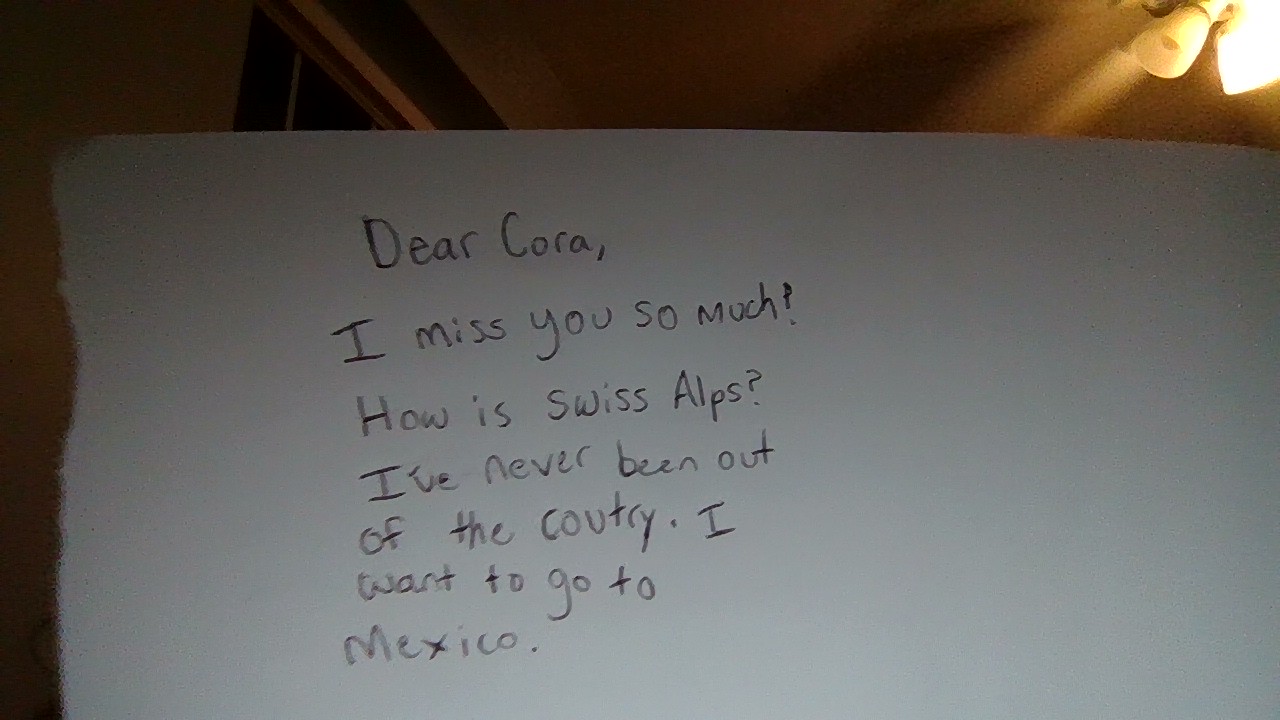 Dear Cora,
I miss you so much!
How is swiss Alps?
I've never been out
of the coutry. I
want to go to
Mexico.